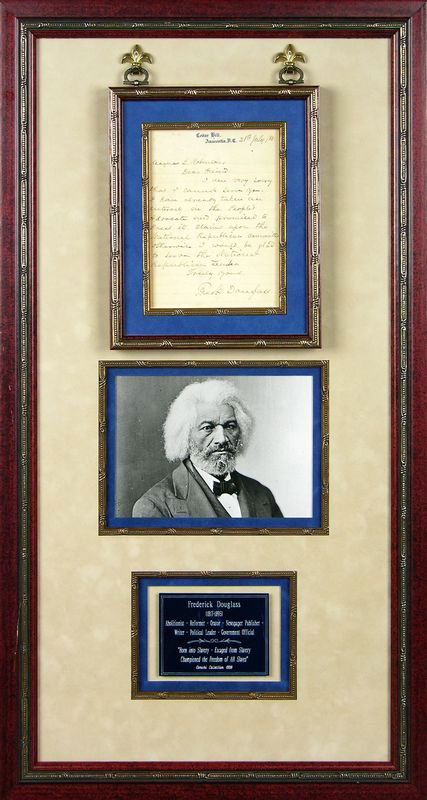 Cedar Hill,
Anacostia, D.C. 21st July, 18
Magnus L. Robinson,
Dear Friend
I am very sorry
that I cannot serve you.
I have already taken an
interest in the People's
Advocate and promised to
its claims upon the
National Republican Committee
otherwise I would be glad
to serve the National
Republican Leader
Truly yours
Fredk Douglass
Frederick Douglass
(1817-1895)
Abolitionist - Reformer - Orator - Newspaper Publisher -
Writer - Political Leader - Government Official
"Born into Slavery - Escaped from Slavery
Championed the Freedom of All Slaves"
Collection